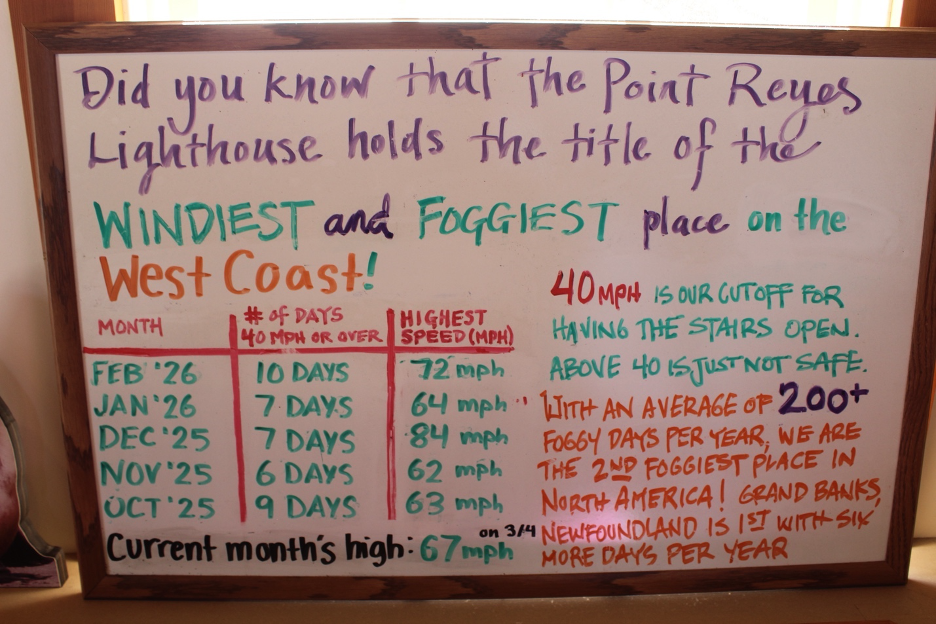 Did you know that the Point Reyes
Lighthouse holds the title of the
WINDIEST and FOGGIEST place on the
West Coast!
MONTH # of DAYS 40 MPH OR OVER HIGHEST SPEED (MPH)
FEB '26 10 DAYS 72 mph
JAN '26 7 DAYS 64 mph
DEC '25 7 DAYS 84 mph
NOV '25 6 DAYS 62 mph
OCT '25 9 DAYS 63 mph
Current month's high: 67 mph on 3/4
40 MPH IS OUR CUTOFF FOR
HAVING THE STAIRS OPEN.
ABOVE 40 IS JUST NOT SAFE.
WITH AN AVERAGE OF 200+
FOGGY DAYS PER YEAR, WE ARE
THE 2ND FOGGIEST PLACE IN
NORTH AMERICA! GRAND BANKS,
NEWFOUNDLAND IS 1ST WITH SIX
MORE DAYS PER YEAR